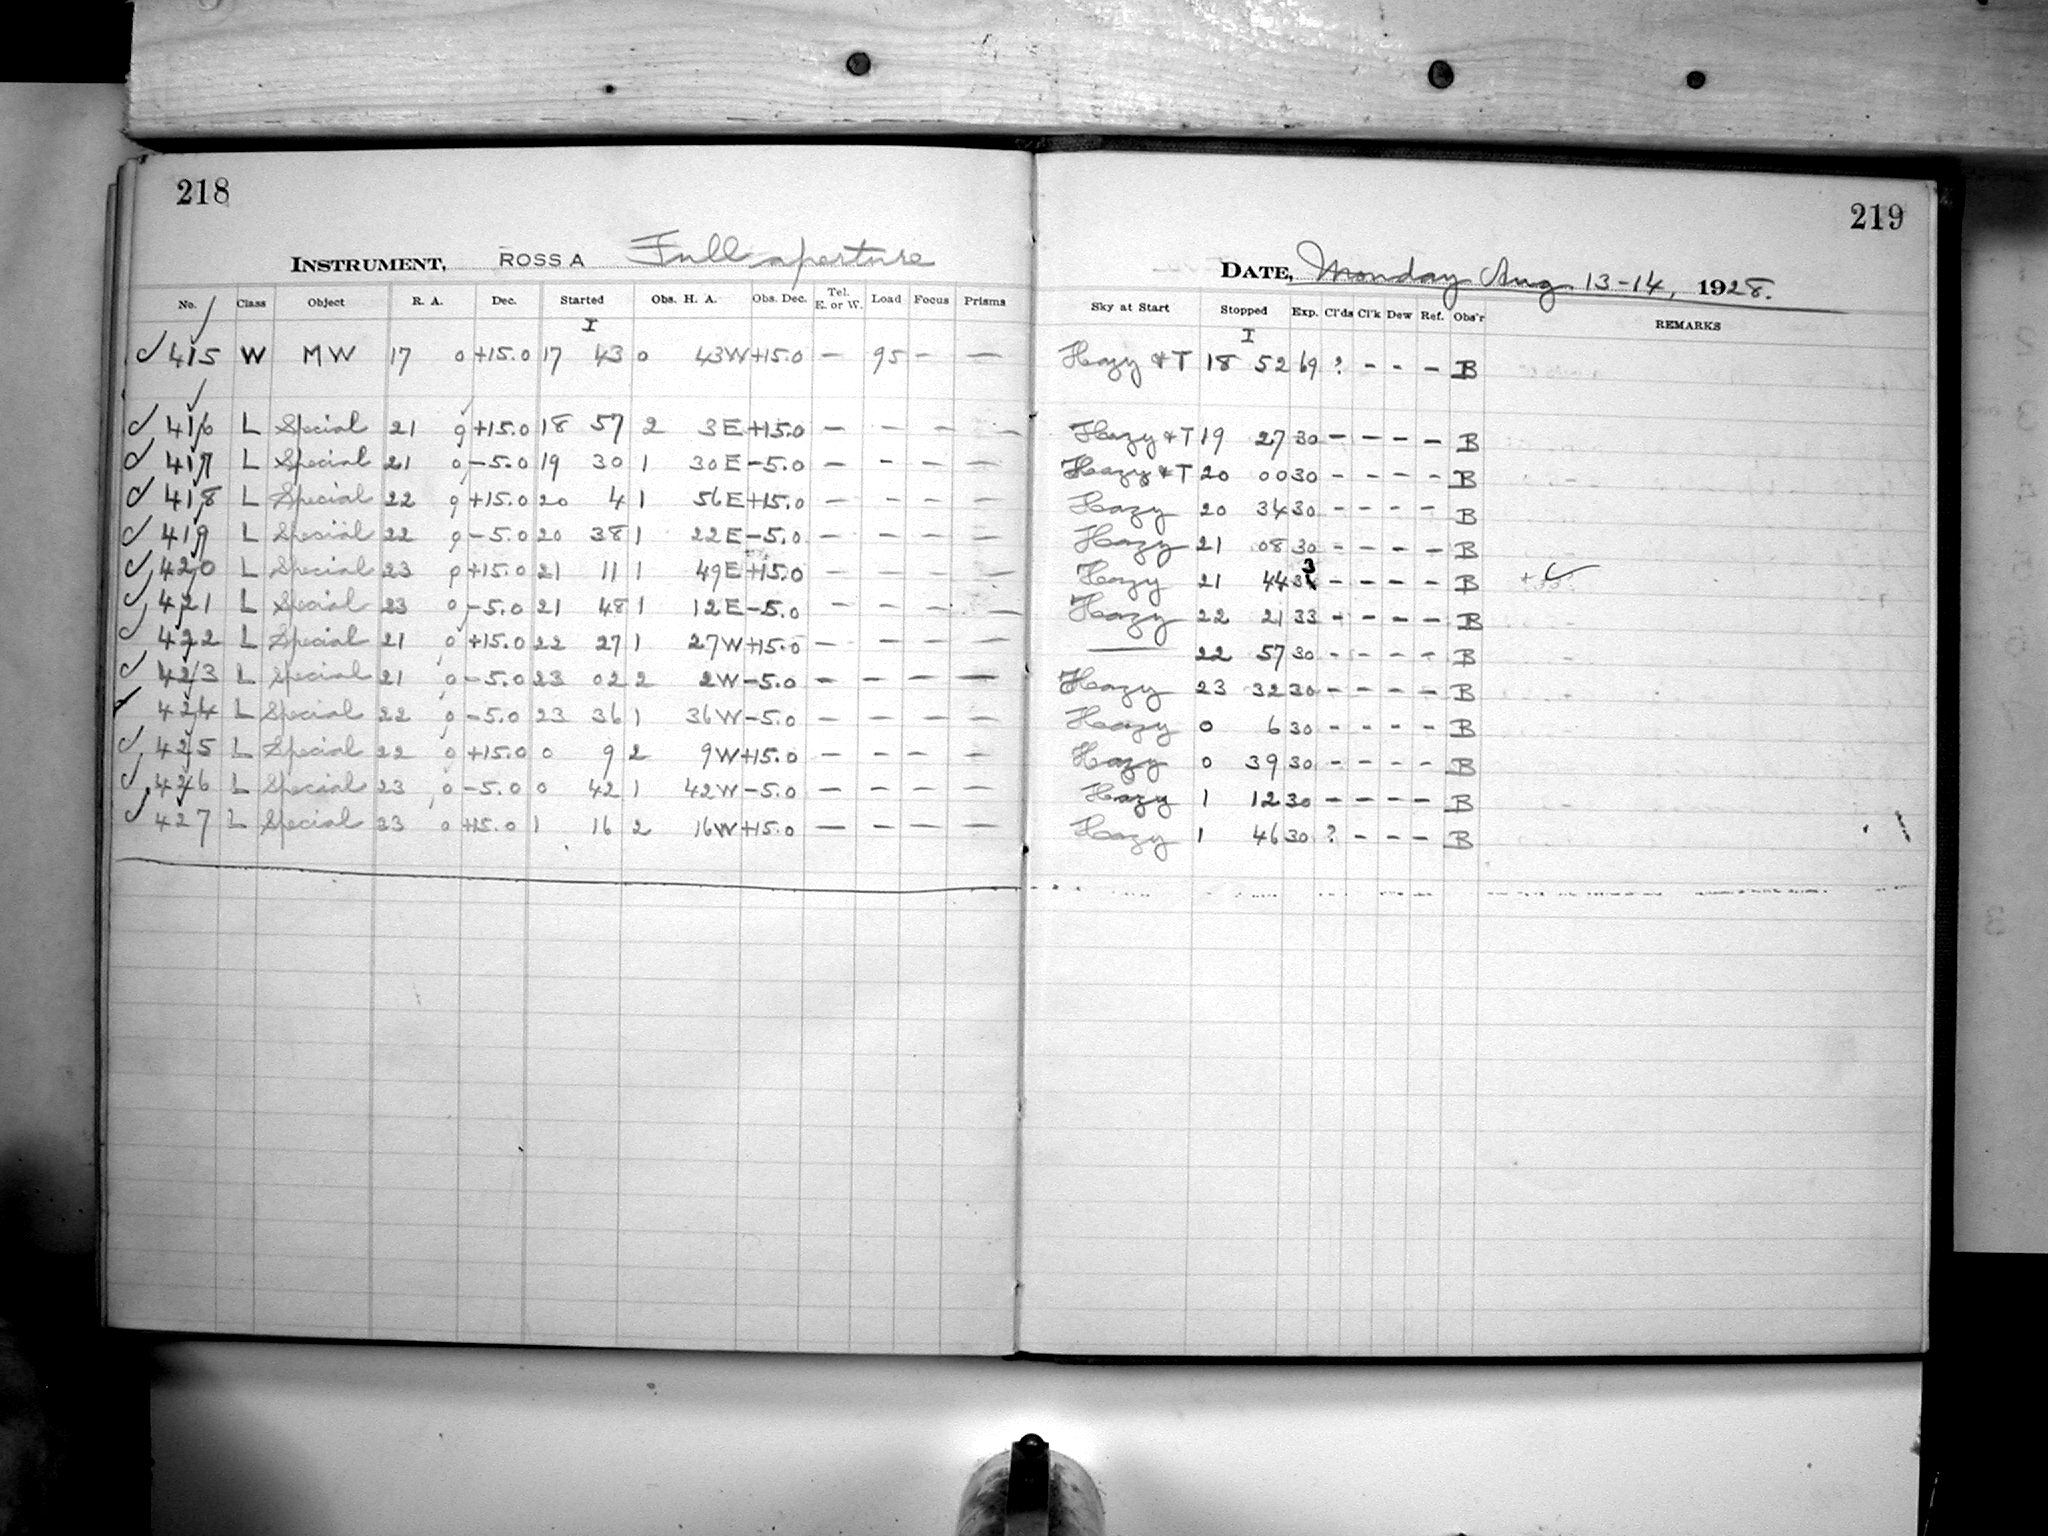 218
INSTRUMENT, ROSS A Full aperture
No. Class Object R. A. Dec. Started Obs. H. A. Obs. Dec. Tel. E. or W. Load Focus Prisms
I
✓ 415 W MW 17 0 +15.0 17 43 0 43W +15.0 — 95 — —
✓ 416 L Special 21 0 +15.0 18 57 2 3E +15.0 — — — —
✓ 417 L Special 21 0 -5.0 19 30 1 30E -5.0 — — — —
✓ 418 L Special 22 0 +15.0 20 4 1 56E +15.0 — — — —
✓ 419 L Special 22 0 -5.0 20 38 1 22E -5.0 — — — —
✓ 420 L Special 23 0 +15.0 21 11 1 49E +15.0 — — — —
✓ 421 L Special 23 0 -5.0 21 48 1 12E -5.0 — — — —
✓ 422 L Special 21 0 +15.0 22 27 1 27W +15.0 — — — —
✓ 423 L Special 21 0 -5.0 23 02 2 2W -5.0 — — — —
✓ 424 L Special 22 0 -5.0 23 36 1 36W -5.0 — — — —
✓ 425 L Special 22 0 +15.0 0 9 2 9W +15.0 — — — —
✓ 426 L Special 23 0 -5.0 0 42 1 42W -5.0 — — — —
✓ 427 L Special 23 0 +15.0 1 16 2 16W +15.0 — — — —
219
DATE, Monday Aug 13-14, 1928.
Sky at Start Stopped Exp. Cl'ds Cl'k Dew Ref. Obs'r REMARKS
I
Hazy & T 18 52 69 ? - - - B
Hazy & T 19 27 30 - - - - B
Hazy & T 20 00 30 - - - - B
Hazy 20 34 30 - - - - B
Hazy 21 08 30 - - - - B
Hazy 21 44 33 - - - - B ✓
Hazy 22 21 33 - - - - B
— 22 57 30 - - - - B
Hazy 23 32 30 - - - - B
Hazy 0 6 30 - - - - B
Hazy 0 39 30 - - - - B
Hazy 1 12 30 - - - - B
Hazy 1 46 30 ? - - - B